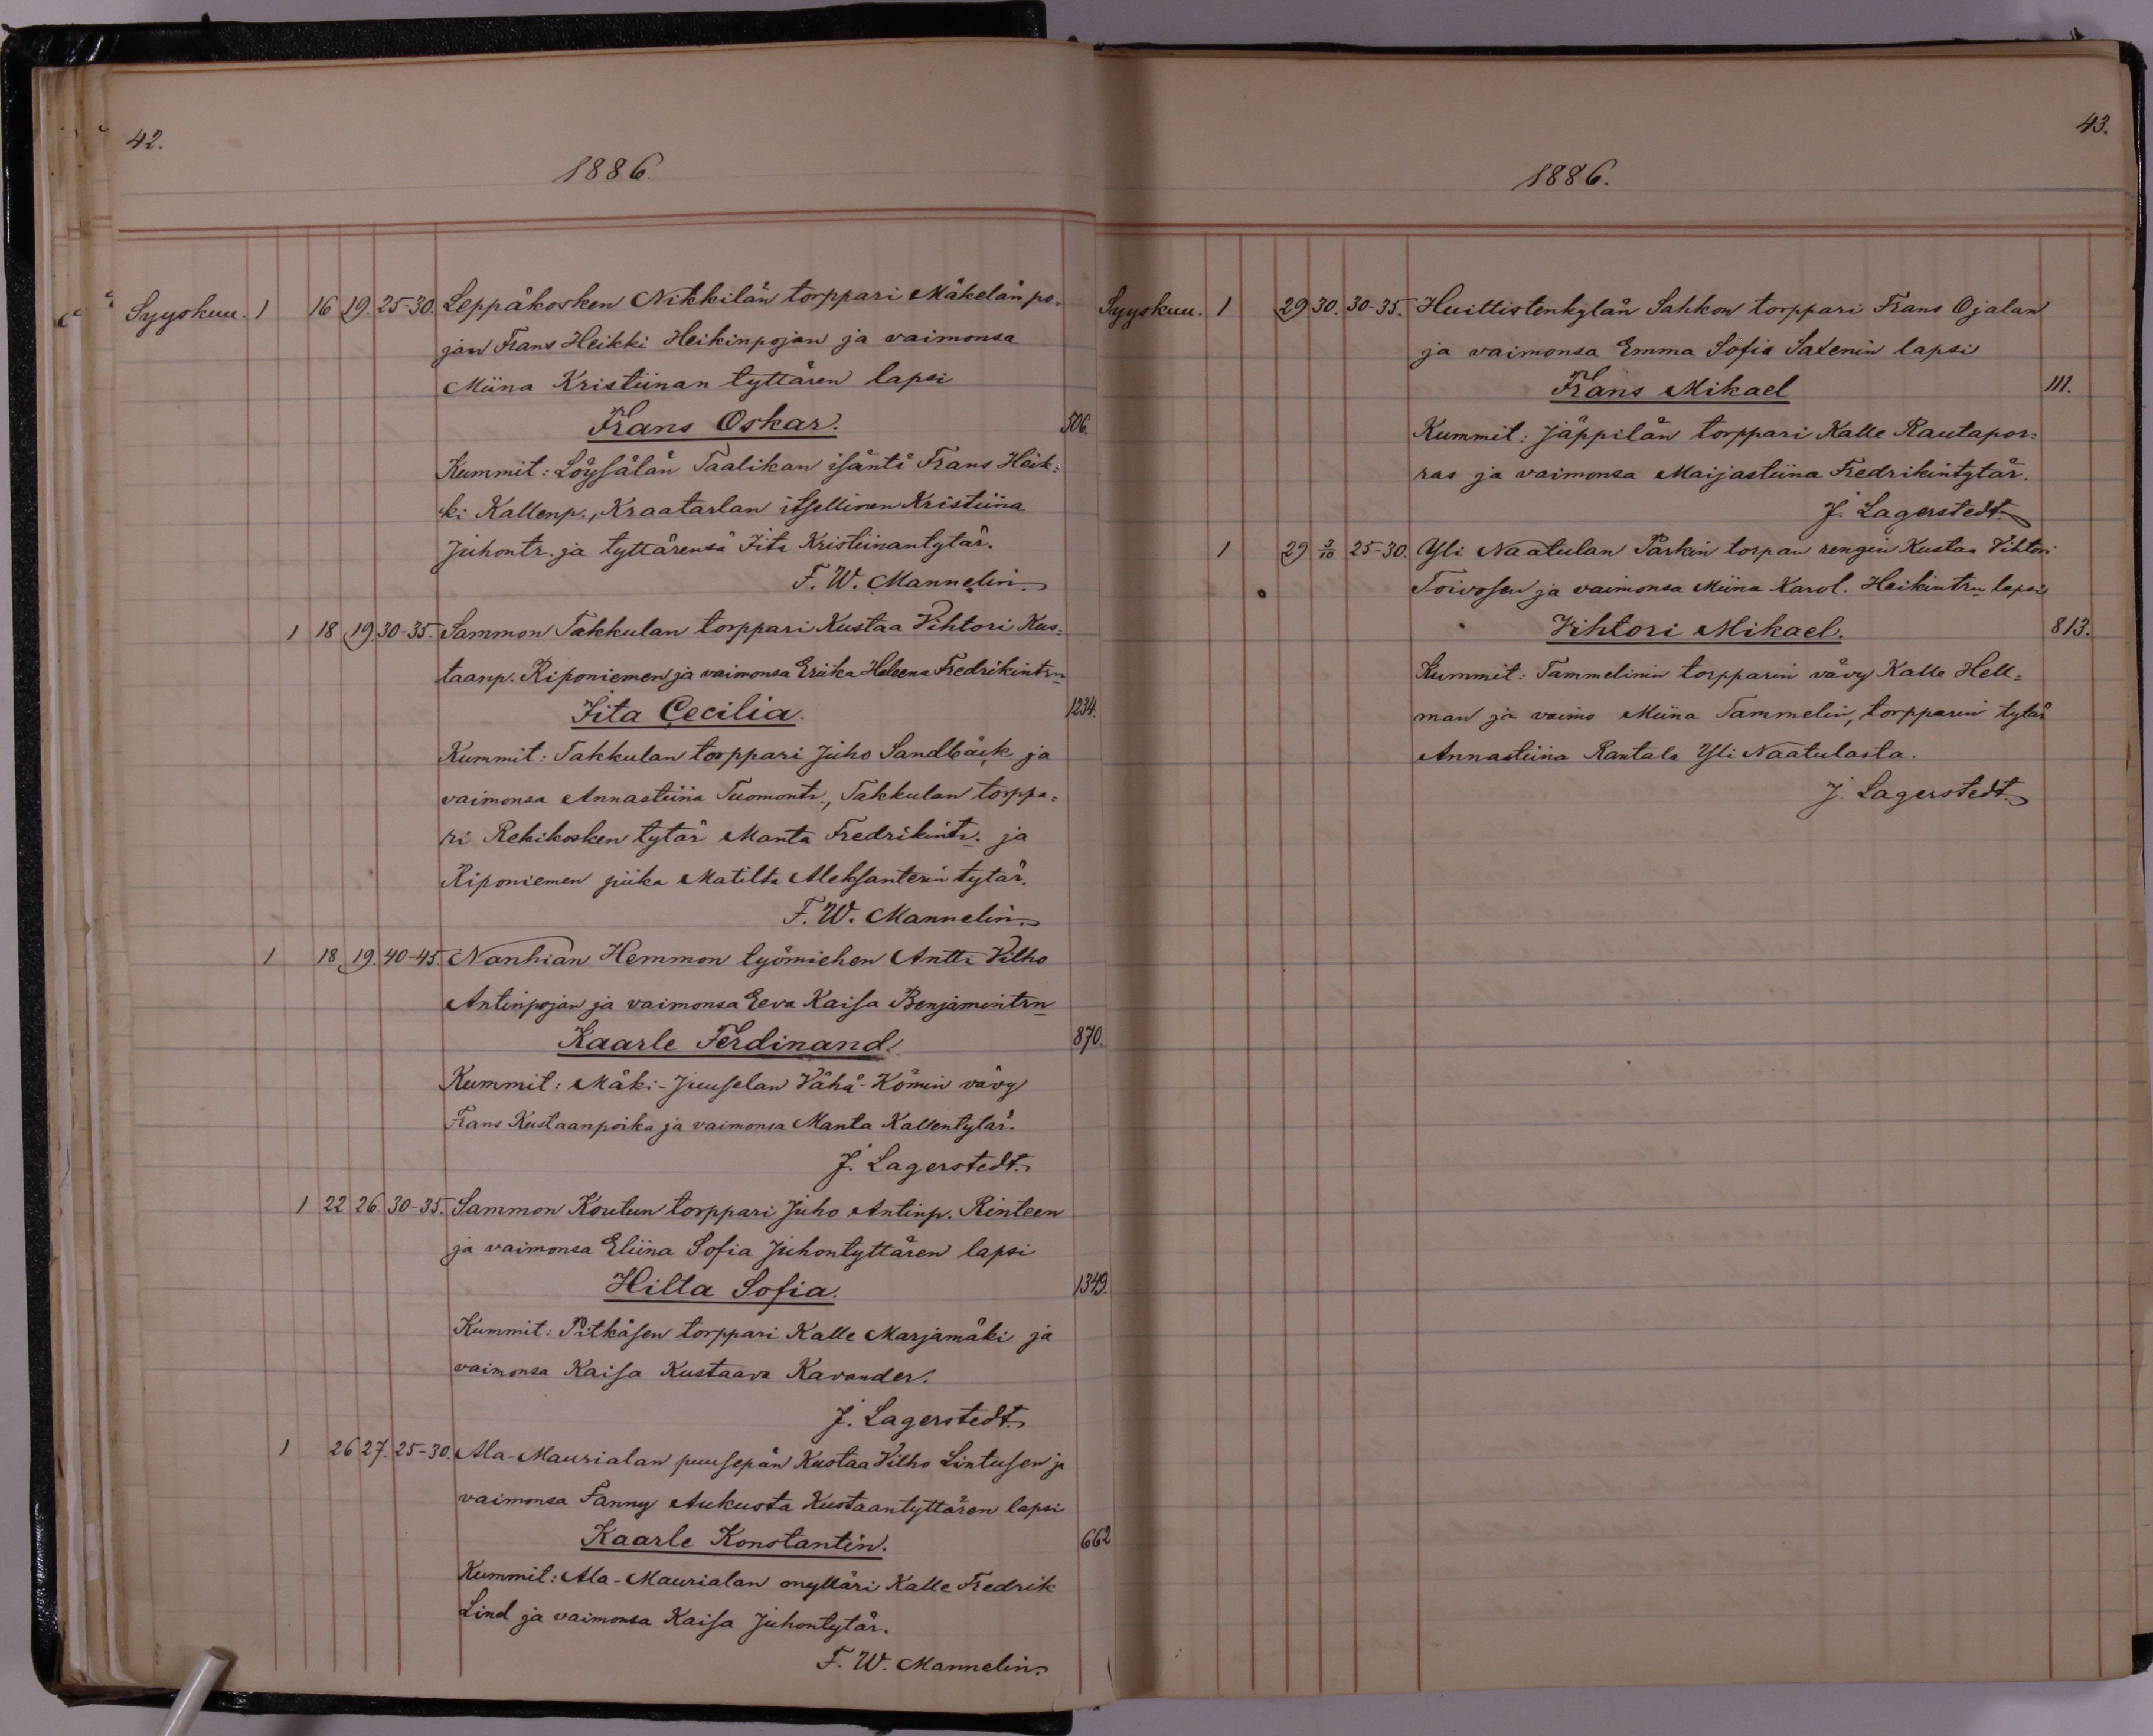 42.
1886.
Syyskuu. 1 16 19. 25-30. Leppäkosken Nikkilän torppari Mäkelän po=
jan Frans Heikki Heikinpojan ja vaimonsa
Miina Kristiinan tyttären lapsi
Frans Oskar. 506.
Kummit: Löysälän Taalikan isäntä Frans Heik=
ki Kallenp., Kraatarlan itsellinen Kristiina
Juhontr. ja tyttärensä Iita Kristiinantytär.
F. W. Mannelin.
1 18 19. 30-35. Sammon Takkulan torppari Kustaa Vihtori Kus=
taanp. Riponiemen ja vaimonsa Eriika Heleena Fredrikintrn
Iita Cecilia. 1234.
Kummit: Takkulan torppari Juho Sandbäck ja
vaimonsa Annastiina Tuomontr., Takkulan torppa=
ri Rekikosken tytär Manta Fredrikintr. ja
Riponiemen piika Matilta Aleksanterin tytär.
F. W. Mannelin.
1 18. 19. 40-45. Nanhian Hemmon työmiehen Antti Vilho
Antinpojan ja vaimonsa Eeva Kaisa Benjamintrn
Kaarle Ferdinand. 870.
Kummit: Mäki-Juuselan Vähä-Kömin vävy
Frans Kustaanpoika ja vaimonsa Manta Kallentytär.
J. Lagerstedt.
1 22 26. 30-35. Sammon Koutun torppari Juho Antinp. Rinteen
ja vaimonsa Eliina Sofia Juhontyttären lapsi
Hilta Sofia. 1349.
Kummit: Pitkäsen torppari Kalle Marjamäki ja
vaimonsa Kaisa Kustaava Kavander.
J. Lagerstedt.
1 26 27. 25-30. Ala-Maurialan puusepän Kustaa Vilho Lintusen ja
vaimonsa Fanny Aukusta Kustaantyttären lapsi
Kaarle Konstantin. 662
Kummit: Ala-Maurialan mylläri Kalle Fredrik
Lind ja vaimonsa Kaisa Juhontytär.
F. W. Mannelin.
43.
1886.
Syyskuu. 1 29 30. 30-35. Huittistenkylän Sahkon torppari Frans Ojalan
ja vaimonsa Emma Sofia Saxenin lapsi
Frans Mikael 111.
Kummit: Jäppilän torppari Kalle Rautapor=
ras ja vaimonsa Maijastiina Fredrikintytär.
J. Lagerstedt.
1 29 3/10 25-30. Yli Naatulan Parkin torpan rengin Kustaa Vihtori
Toivosen ja vaimonsa Miina Karol. Heikintrn lapsi
Vihtori Mikael. 813.
Kummit: Tammelinin torpparin vävy Kalle Hell=
man ja vaimo Miina Tammelin, torpparin tytär
Annastiina Rantala Yli Naatulasta.
J. Lagerstedt.